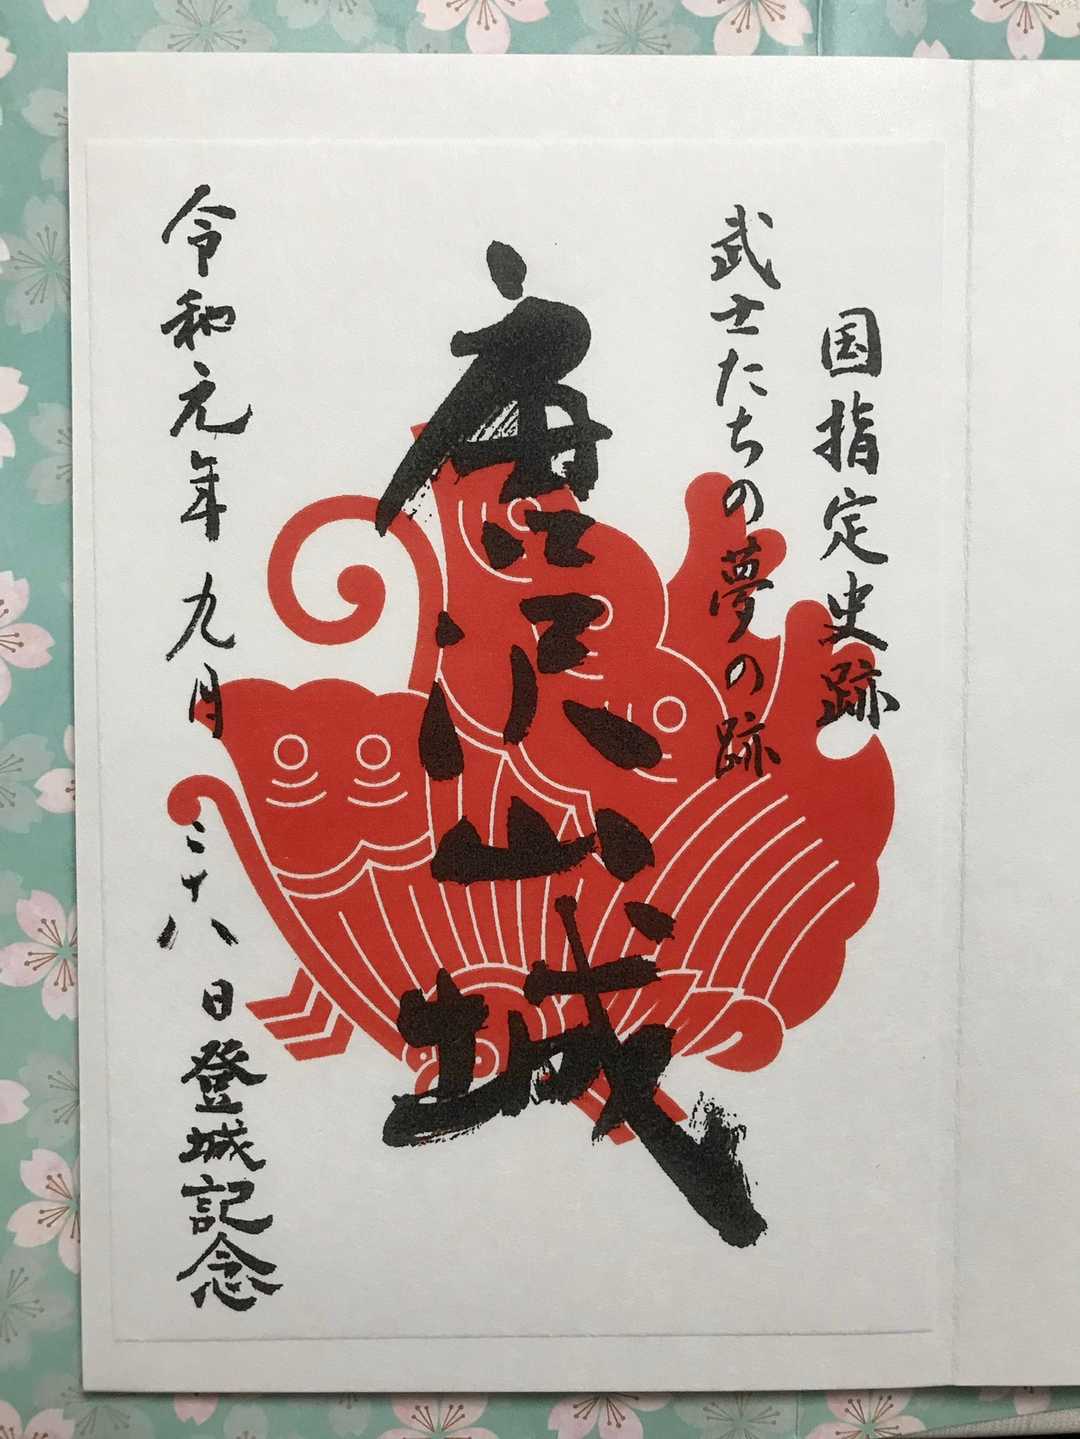 国指定史跡
武士たちの夢の跡
唐沢山城
令和元年九月二十八日登城記念